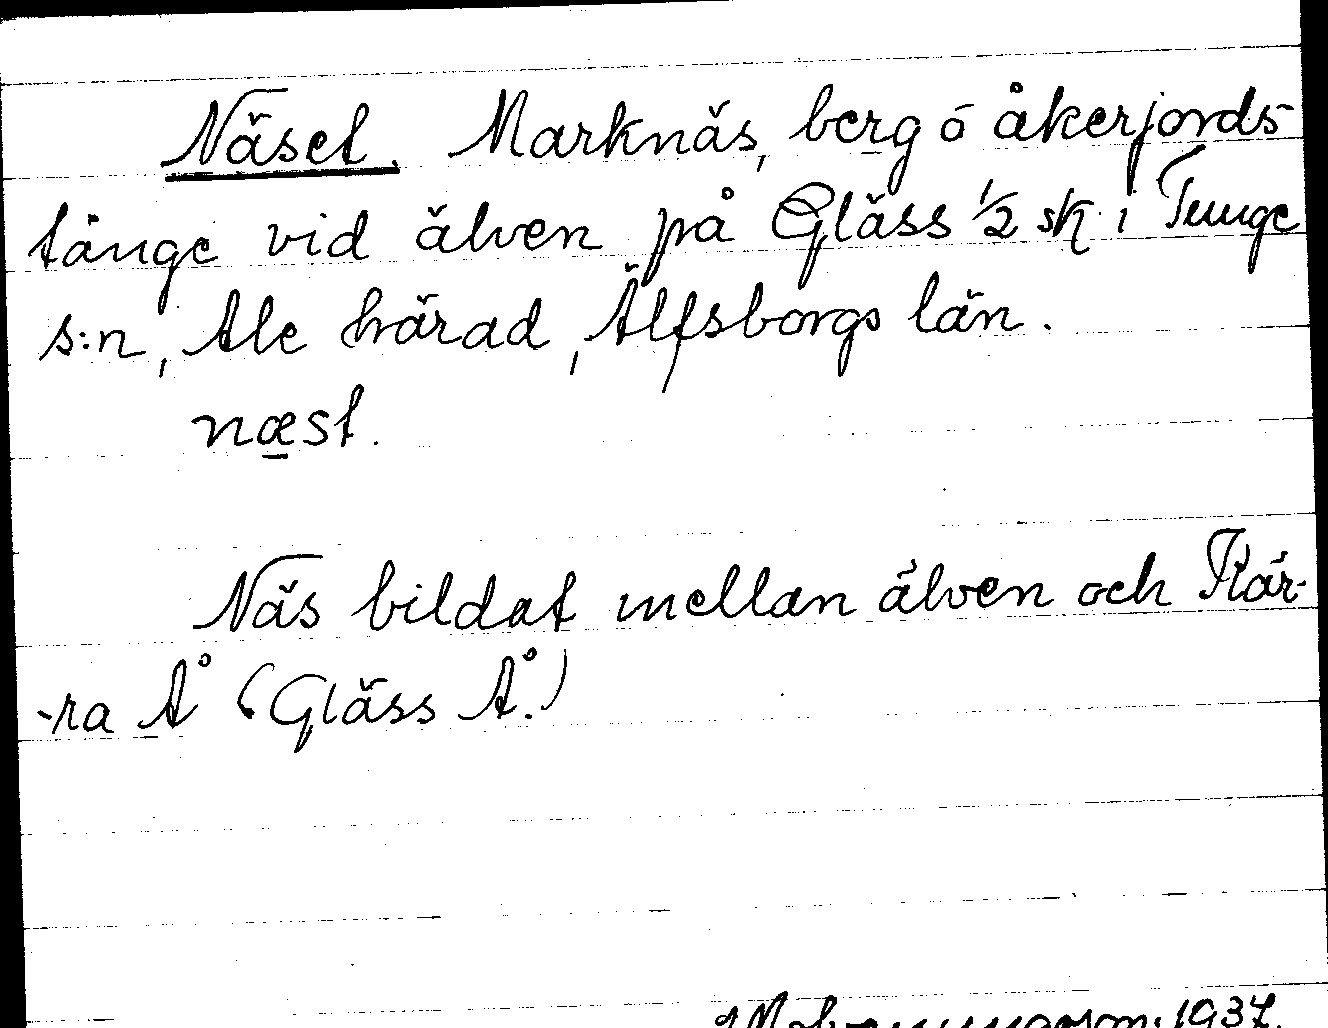 Näset. Marknäs, berg ó åkerjords-
tånge vid älven på Gläss 1/2 sk. i Tunge
s:n, Ale härad, Älfsborgs län.
næst.
Näs bildat mellan älven och Kär-
-ra Å (Gläss Å.)
1937.